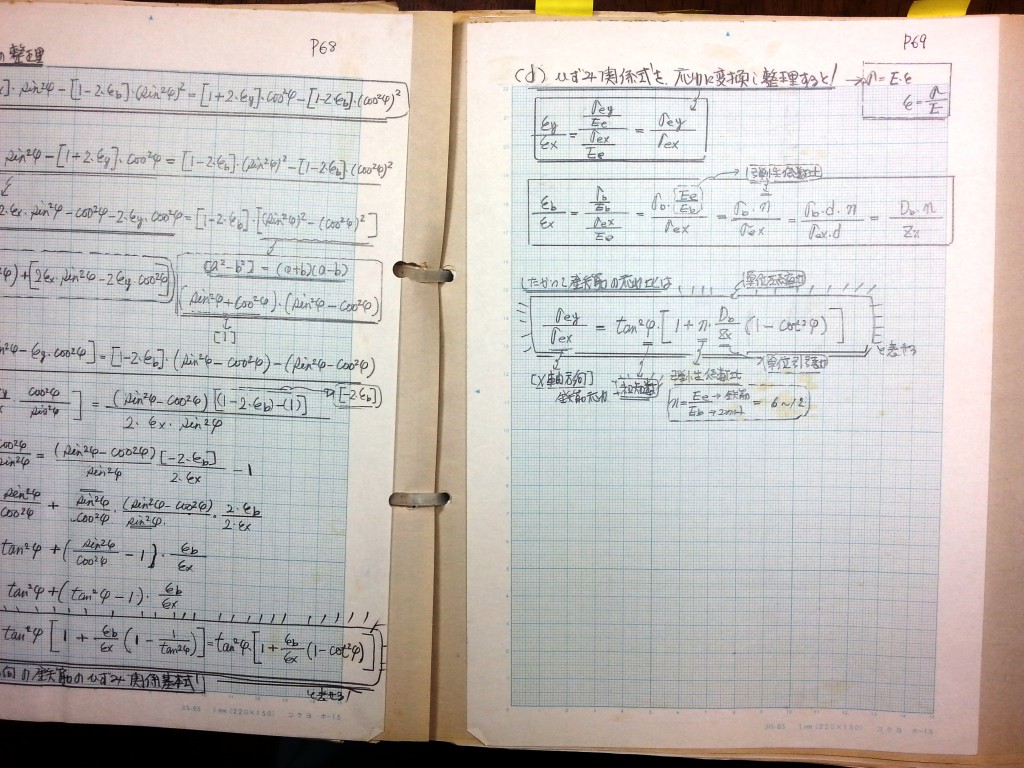 P68
の整理
]·sin²φ−[1−2·εb]·(sin²φ)²=[1+2·εy]·cos²φ−[1−2·εb]·(cos²φ)²
sin²φ−[1+2·εy]·cos²φ=[1−2·εb]·(sin²φ)²−[1−2·εb]·(cos²φ)²
2·εx·sin²φ−cos²φ−2·εy·cos²φ=[1−2·εb]·[(sin²φ)²−(cos²φ)²]
φ)+[2εx·sin²φ−2εy·cos²φ]
[a²−b²]=(a+b)(a−b)
(sin²φ+cos²φ)·(sin²φ−cos²φ)
[1]
n²φ−εy·cos²φ]=[1−2·εb]·(sin²φ−cos²φ)−(sin²φ−cos²φ)
cos²φ/sin²φ]=(sin²φ−cos²φ)[(1−2·εb)−(1)]/2·εx·sin²φ
[−2·εb]
cos²φ/sin²φ=(sin²φ−cos²φ)/sin²φ·[−2·εb]/2·εx−1
sin²φ/cos²φ+sin²φ/cos²φ·(sin²φ−cos²φ)/sin²φ·2·εb/2·εx
tan²φ+(sin²φ/cos²φ−1)·εb/εx
tan²φ+(tan²φ−1)·εb/εx
tan²φ[1+εb/εx(1−1/tan²φ)]=tan²φ·[1+εb/εx(1−cot²φ)]
向の鉄筋のひずみ関係基本式!
と表せる
1mm(220×150) コクヨ ホ-15
P69
(d) ひずみ関係式を、応力に変換し整理すると!
σ=E·ε
ε=σ/E
εy/εx=(σey/Ee)/(σex/Ee)=σey/σex
弾性係数比
εb/εx=(σb/Eb)/(σex/Ee)=σb·(Ee/Eb)/σex=σb·n/σex=σb·d·n/σex·d=Db·n/Zx
したがって鉄筋の応力比は
σey/σex=tan²φ·[1+n·Db/Zx(1−cot²φ)]
と表せる
単位引張力
[X軸方向]
鉄筋応力
弾性係数比
n=Ee→鉄筋/Eb→コンクリート=6~12
1mm(220×150) コクヨ ホ-15